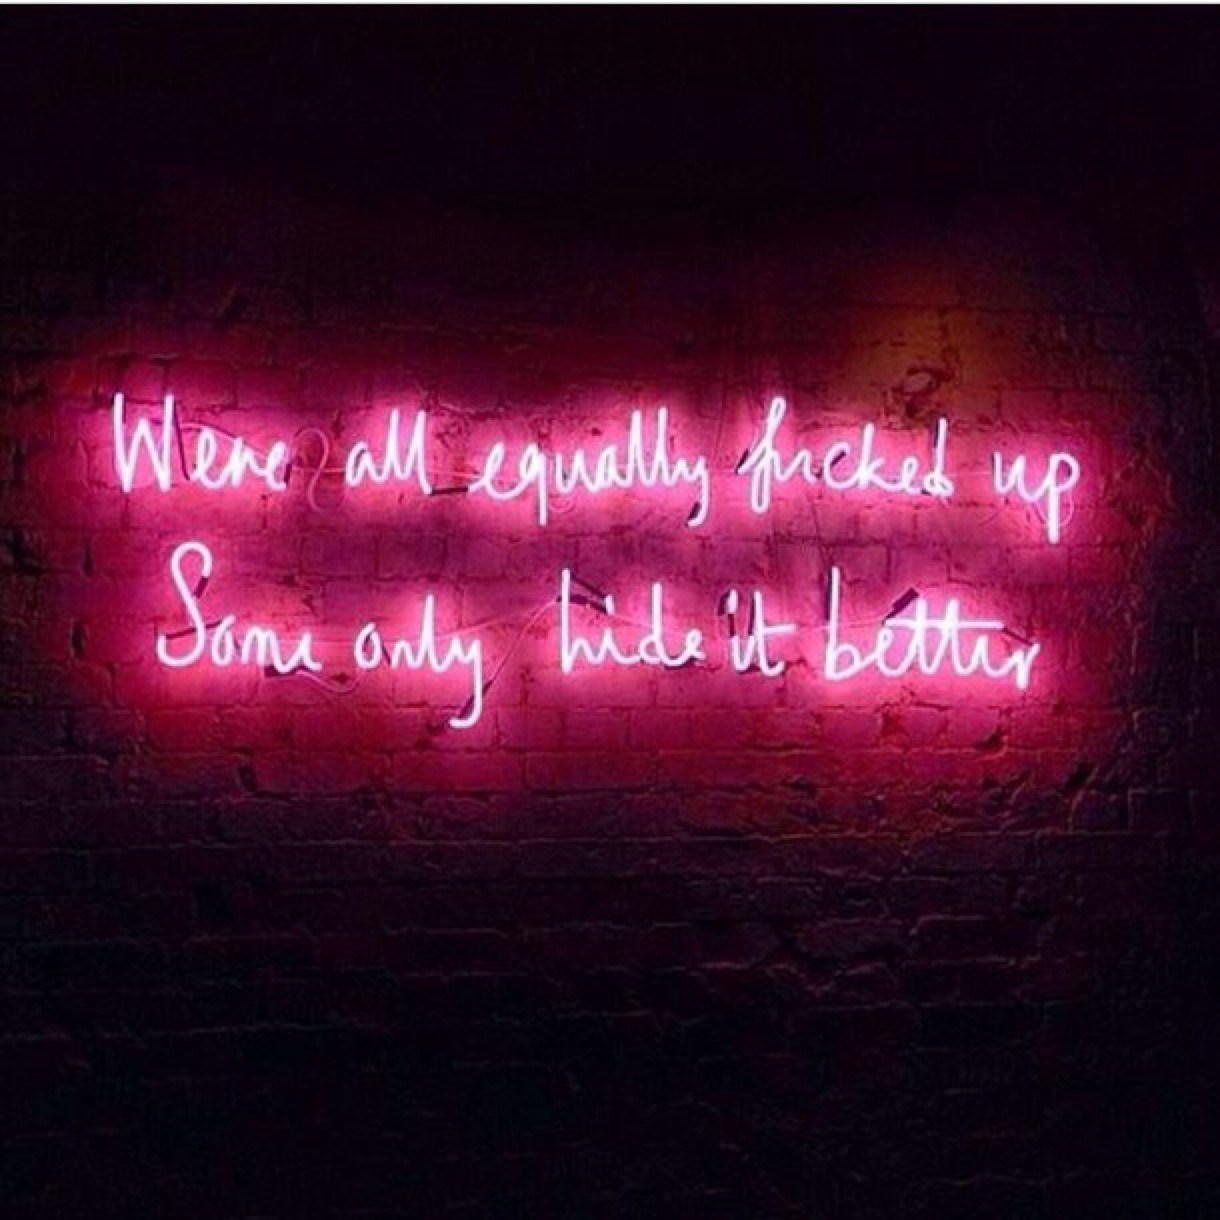 Were all equally fucked up
Some only hide it better